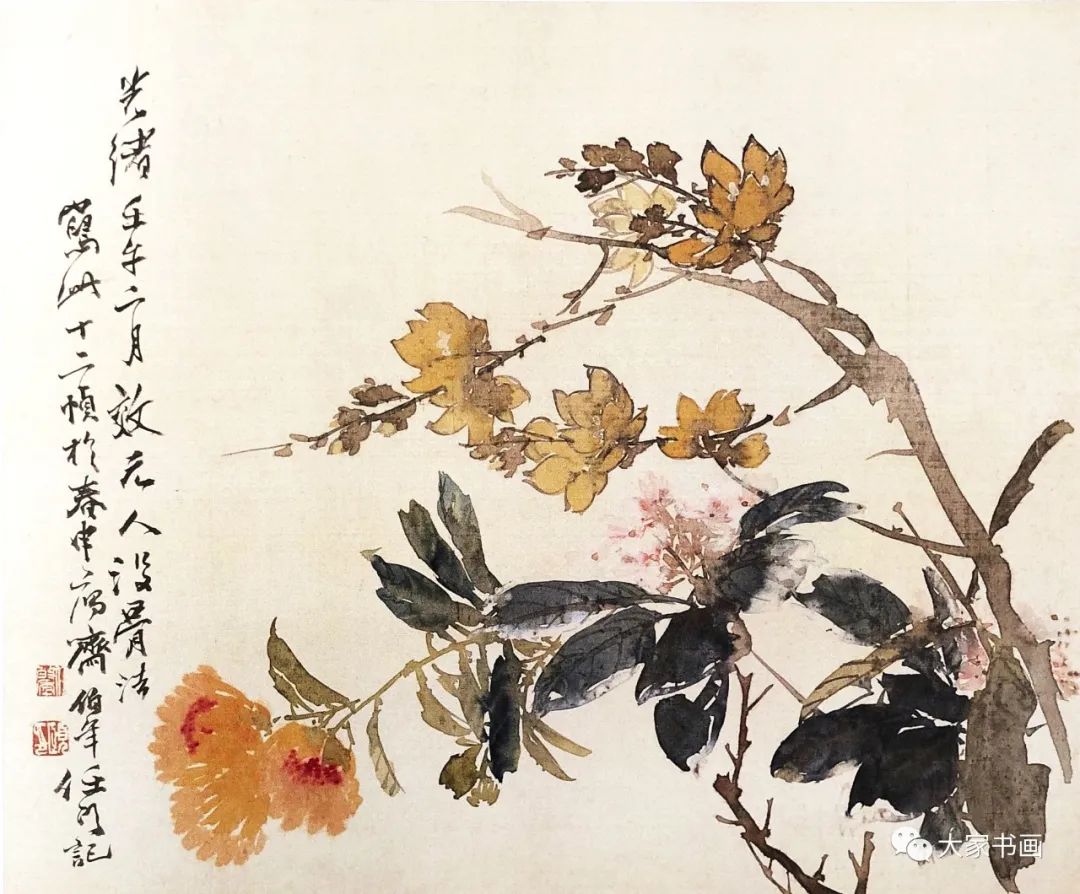 光緒壬午二月效元人没骨法
寫此十二幀於春申寓齋伯年任頤記
大家书画